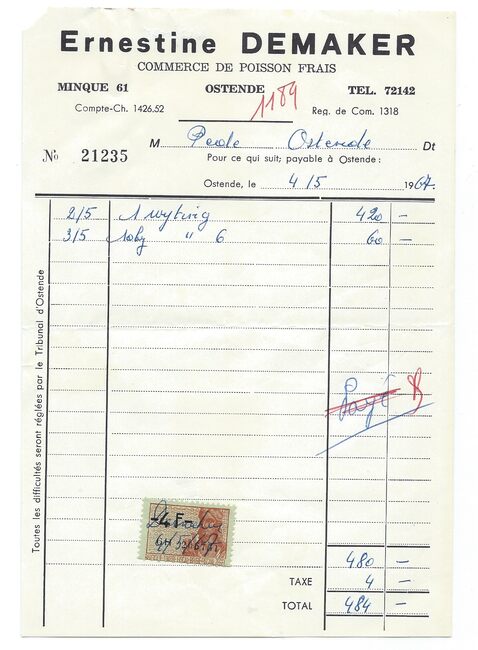 Ernestine DEMAKER
COMMERCE DE POISSON FRAIS
MINQUE 61 OSTENDE TEL. 72142
Compte-Ch. 1426.52 1189 Reg. de Com. 1318
M Ostende Dt
No 21235 Pour ce qui suit; payable à Ostende:
Ostende, le 4/5 1967.
2/5 1 420 –
3/5 " 6 60 –
Payé
Toutes les difficultés seront réglées par le Tribunal d'Ostende
4F
480 –
TAXE 4 –
TOTAL 484 –